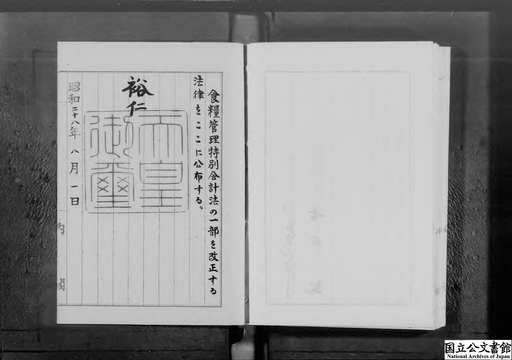 食糧管理特別会計法の一部を改正する
法律をここに公布する。
裕仁
天皇
御璽
昭和二十八年八月一日
内閣
国立公文書館
National Archives of Japan